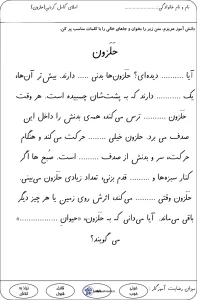 نام و نام خانوادگی:
املای کامل کردنی(حلزون)
دانش آموز عزیزم، متن زیر را بخوان و جاهای خالی را با کلمات مناسب پر کن.
حلزون
آیا .......... دیده‌ای؟ حلزون‌ها بدنی ..... دارند. بیش تر آن‌ها،
یک .......... دارند که به پشت‌شان چسبیده است. هر وقت
حلزون .......... ترس می‌کند، همه‌ی بدنش را داخل این
صدف می برد. حلزون خیلی ........ حرکت می‌کند و هنگام
حرکت، سر و بدنش از صدف .......... است. صبح ها اگر
کنار سبزه‌ها و ........ قدم بزنی، تعداد زیادی حلزون می‌بینی.
حلزون وقتی ........ می‌کند، اثرش روی زمین یا هر چیز دیگر
باقی می‌ماند. آیا می‌دانی که به حلزون، «حیوان ...............»
می گویند؟
میزان رضایت آموزگار:
خیلی خوب
خوب
قابل قبول
نیاز به تلاش